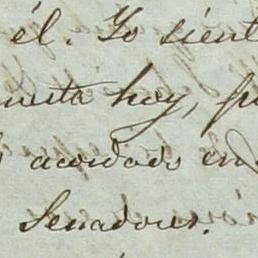 él. Yo sient
hoy,
acordado en
Senadores.